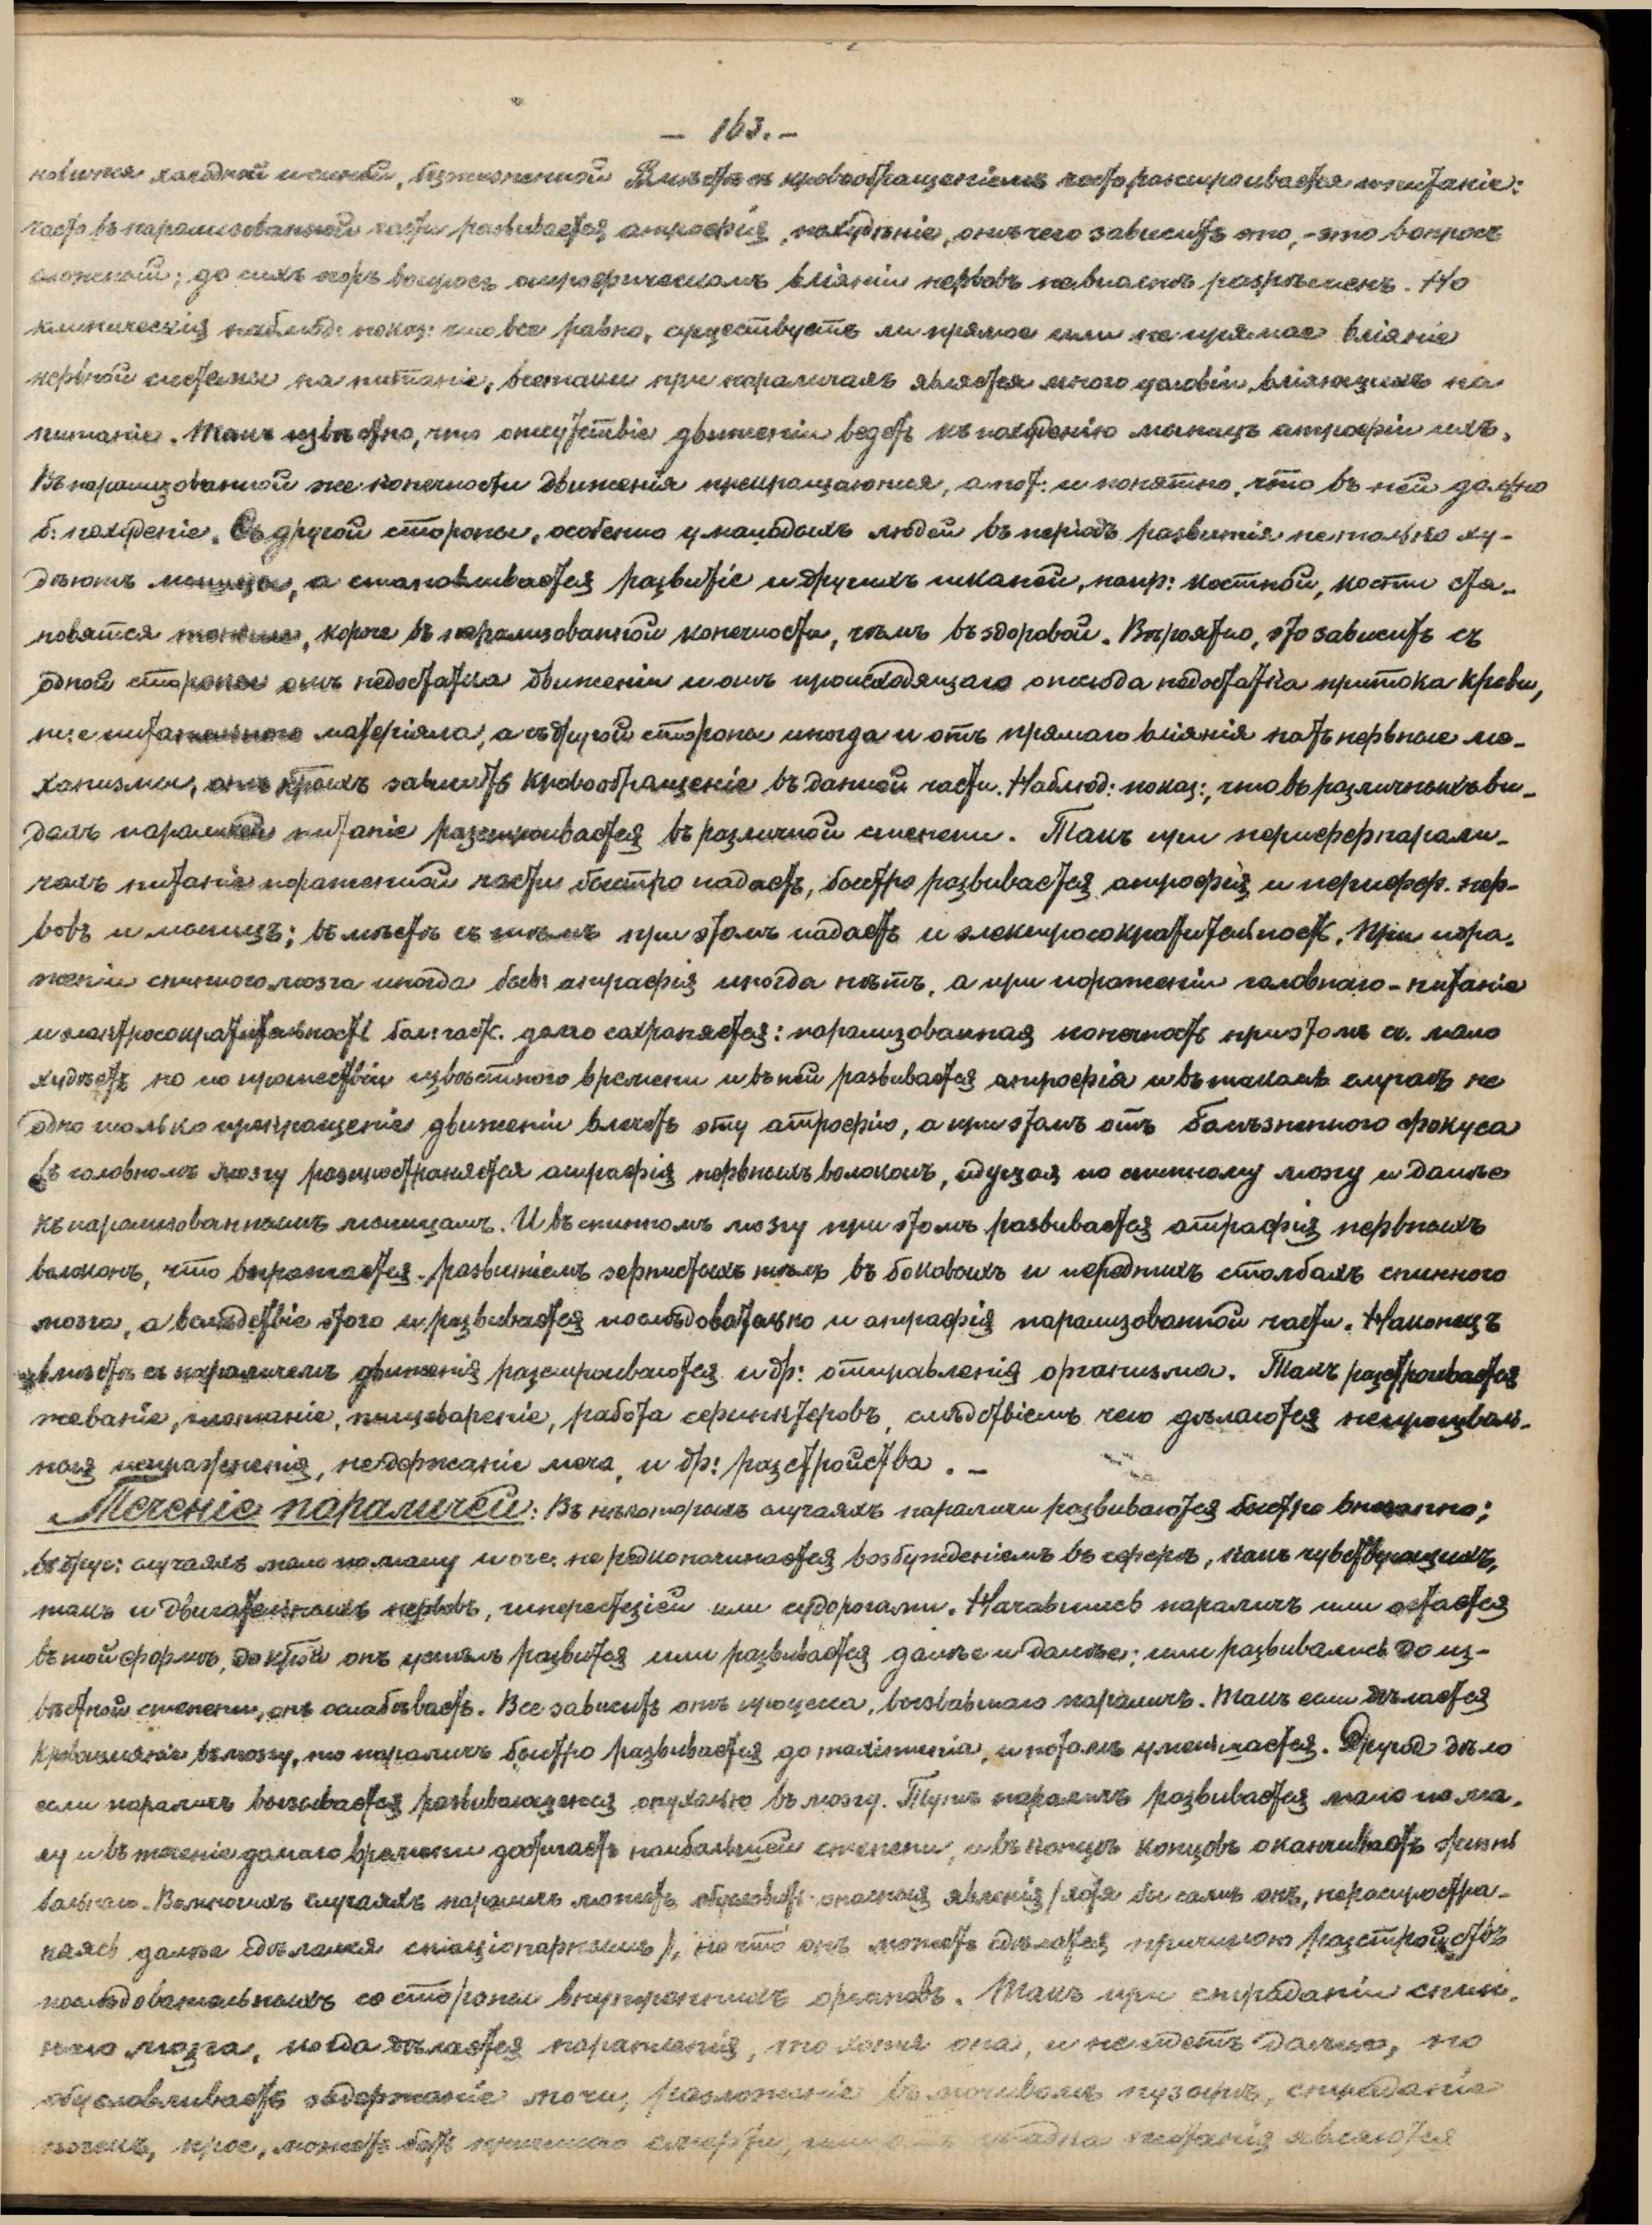 — 163. —
новится холодной и синей, безжизненной. Вмѣстѣ съ кровообращеніемъ часто разстроивается и питаніе:
часто въ парализованной части развивается атрофія, похуденіе, отъ чего зависитъ это, - это вопросъ
сложный; до сихъ поръ вопросъ о трофическомъ вліяніи нервовъ не вполнѣ разрѣшенъ. Но
клиническія наблюд: показ: что все равно, существуетъ ли прямое или не прямое вліяніе
нервной системы на питаніе, все таки при параличахъ является много условій, вліяющихъ на
питаніе. Такъ извѣстно, что отсутствіе движеній ведетъ къ похуденію мышцъ атрофіи ихъ.
Въ парализованной же конечности движенія прекращаются, а пот: и понятно, что въ ней должно
б: похуденіе. Съ другой стороны, особенно у молодыхъ людей въ періодъ развитія не только ху-
дѣютъ мышцы, а становливается развитіе и другихъ тканей, напр: костной, кости ста-
новятся тоньше, короче въ парализованной конечности, чѣмъ въ здоровой. Вѣроятно, это зависитъ съ
одной стороны отъ недостатка движеній и отъ происходящаго отсюда недостатка притока крови,
т: е питательнаго матеріяла, а съ другой стороны иногда и отъ прямаго вліянія на тѣ нервные ме-
ханизмы, отъ кроыхъ зависитъ кровообращеніе въ данной части. Наблюд: показ:, что въ различныхъ ви-
дахъ параличей питаніе разстроивается въ различной степени. Такъ при периферпарали-
чахъ питаніе пораженной части быстро падаетъ, быстро развивается атрофія и перифер. нер-
вовъ и мышцъ; вмѣстѣ съ тѣмъ при этомъ падаетъ и электросократительность. При пора-
женіи спинного мозга иногда быв: атрафія иногда нѣтъ, а при пораженіи головнаго - питаніе
и электросократительность бол: част. долго сохраняется: парализованная конечность при этомъ оч. мало
худѣетъ но по прошествіи извѣстного времени и въ ней развивается атрофія и въ такомъ случаѣ не
одно только прекращеніе движеній влечетъ эту атрофію, а при этомъ отъ болѣзненного фокуса
въ головномъ мозгу разпространяется атрафія нервныхъ волоконъ, идущая по спинному мозгу и далѣе
къ парализованнымъ мышцамъ. И въ спинномъ мозгу при этомъ развивается атрафія нервныхъ
волоконъ, что выражается развитіемъ зернистыхъ тѣлъ въ боковыхъ и переднихъ столбахъ спинного
мозга, а вслѣдствіе этого и развивается послѣдовательно и атрафія парализованной части. Наконецъ
вмѣстѣ съ параличемъ движенія разстроиваются и др: отправленія организма. Такъ разстроивается
жеваніе, глотаніе, пищевареніе, работа сфинктеровъ, слѣдствіемъ чего дѣлаются непроизволь-
ныя испражненія, недержаніе мочи, и др: разстройства. —
Теченіе параличей: Въ нѣкоторыхъ случаяхъ параличи развиваются быстро внезапно;
въ друг: случаяхъ мало по малу и оче: нередко начинается возбужденіемъ въ сферѣ, какъ чувствующихъ,
такъ и двигательныхъ нервовъ, гиперестезіей или судорогами. Начавшись параличъ или остается
въ той формѣ, до крой онъ успѣлъ развится или развивается далѣе и далѣе; или развивались до из-
вѣстной степени, онъ ослабѣваетъ. Все зависитъ отъ процесса, вызвавшаго параличъ. Такъ если дѣлается
кровоизліяніе въ мозгу, то параличъ быстро развивается до maximumа, и потомъ уменьшается. Другое дѣло
если параличъ вызывается развивающеюся опухолью въ мозгу. Тутъ параличъ развивается мало по ма-
лу и въ теченіе долгаго времени достигаетъ наибольшей степени, и въ концѣ концовъ оканчиваетъ жизнь
больнаго. Во многихъ случаяхъ параличъ можетъ обусловить опасныя явленія /хотя бы самъ онъ, не распростра-
няясь далѣе сдѣлался стаціонарнымъ/, но что онъ можетъ сдѣлатся причиною разстройствъ
послѣдовательныхъ со стороны внутреннихъ органовъ. Такъ при страданіи спин-
ного мозга, когда дѣлается параплегія, то хотя она, и не идетъ далѣе, но
обусловливаетъ задержаніе мочи, разложеніе въ мочевомъ пузырѣ, страданіе
почекъ, крое, можетъ быть причиною смерти, упадка питанія являются